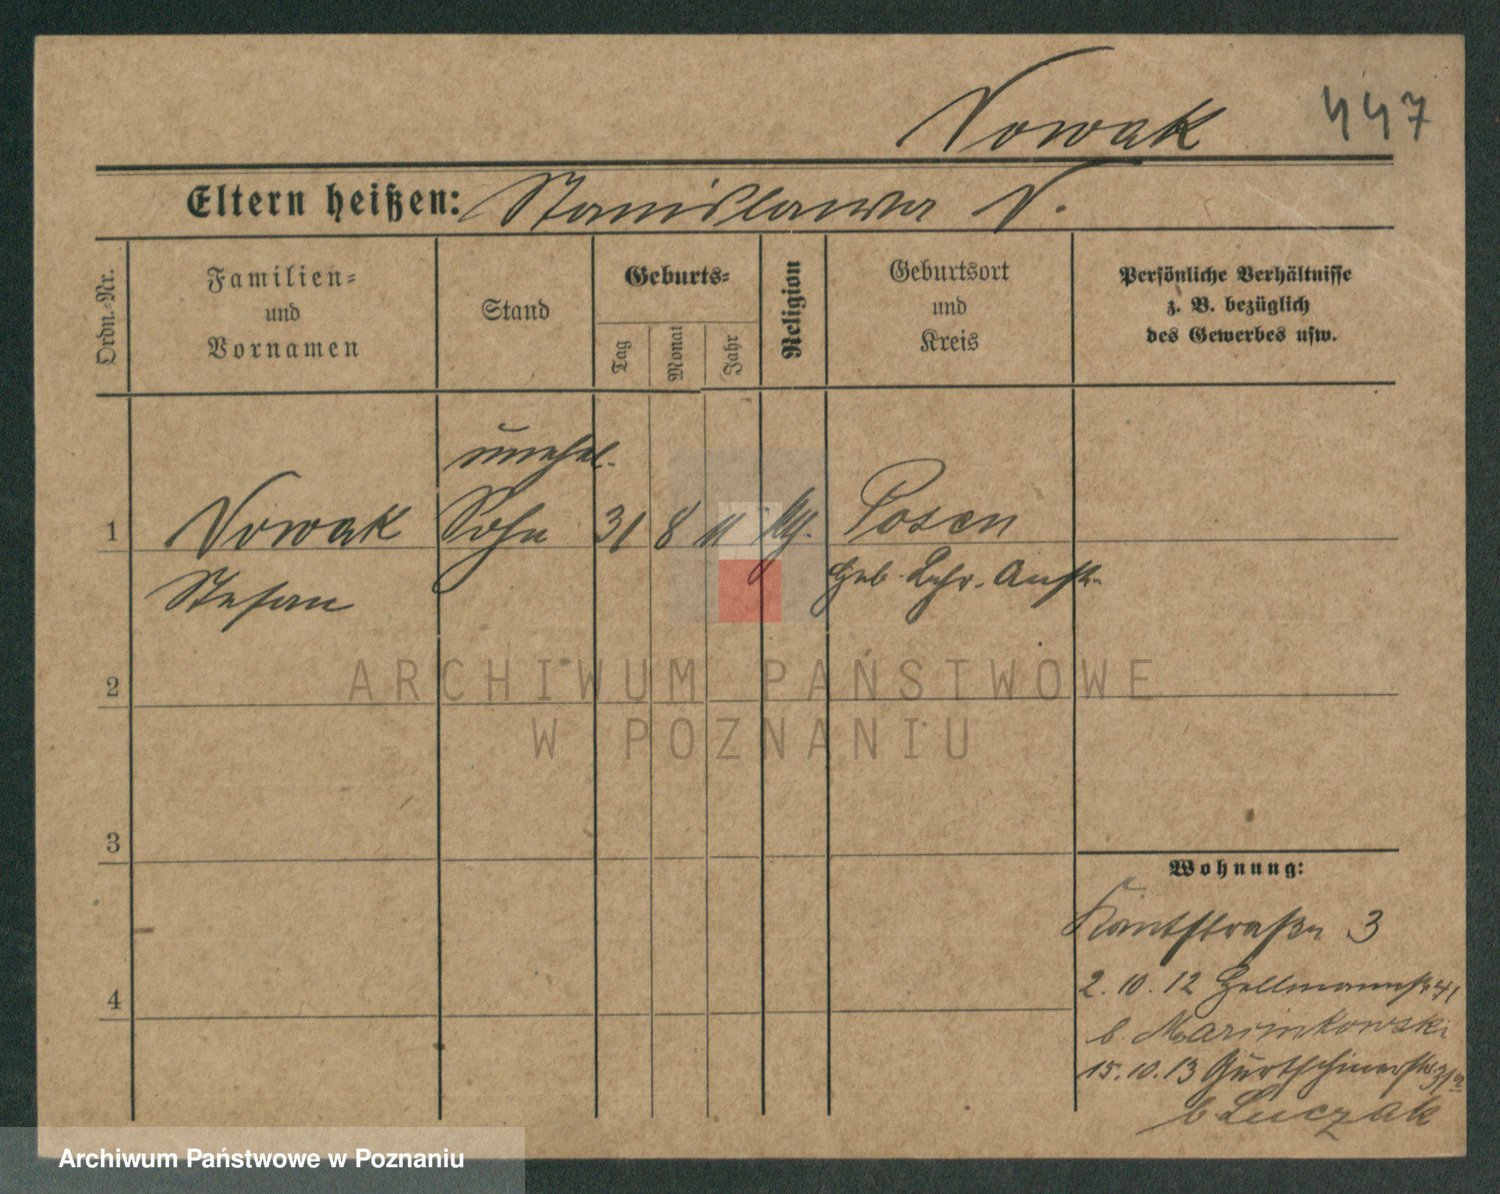 Nowak
447
Eltern heißen: Stanislawa N.
Ordn.-Nr.
Familien-
und
Vornamen
Stand
Geburts-
Tag
Monat
Jahr
Religion
Geburtsort
und
Kreis
Persönliche Verhältnisse
z. B. bezüglich
des Gewerbes usw.
unehel.
1 Nowak Sohn 31 8 11 kth. Posen
Stefan
Geb. Lehr. Anst.
2
3
4
Wohnung:
Kantstraße 3
2. 10. 12
b. Marcinkowski
15. 10. 13
b. Luczak
ARCHIWUM PAŃSTWOWE
W POZNANIU
Archiwum Państwowe w Poznaniu